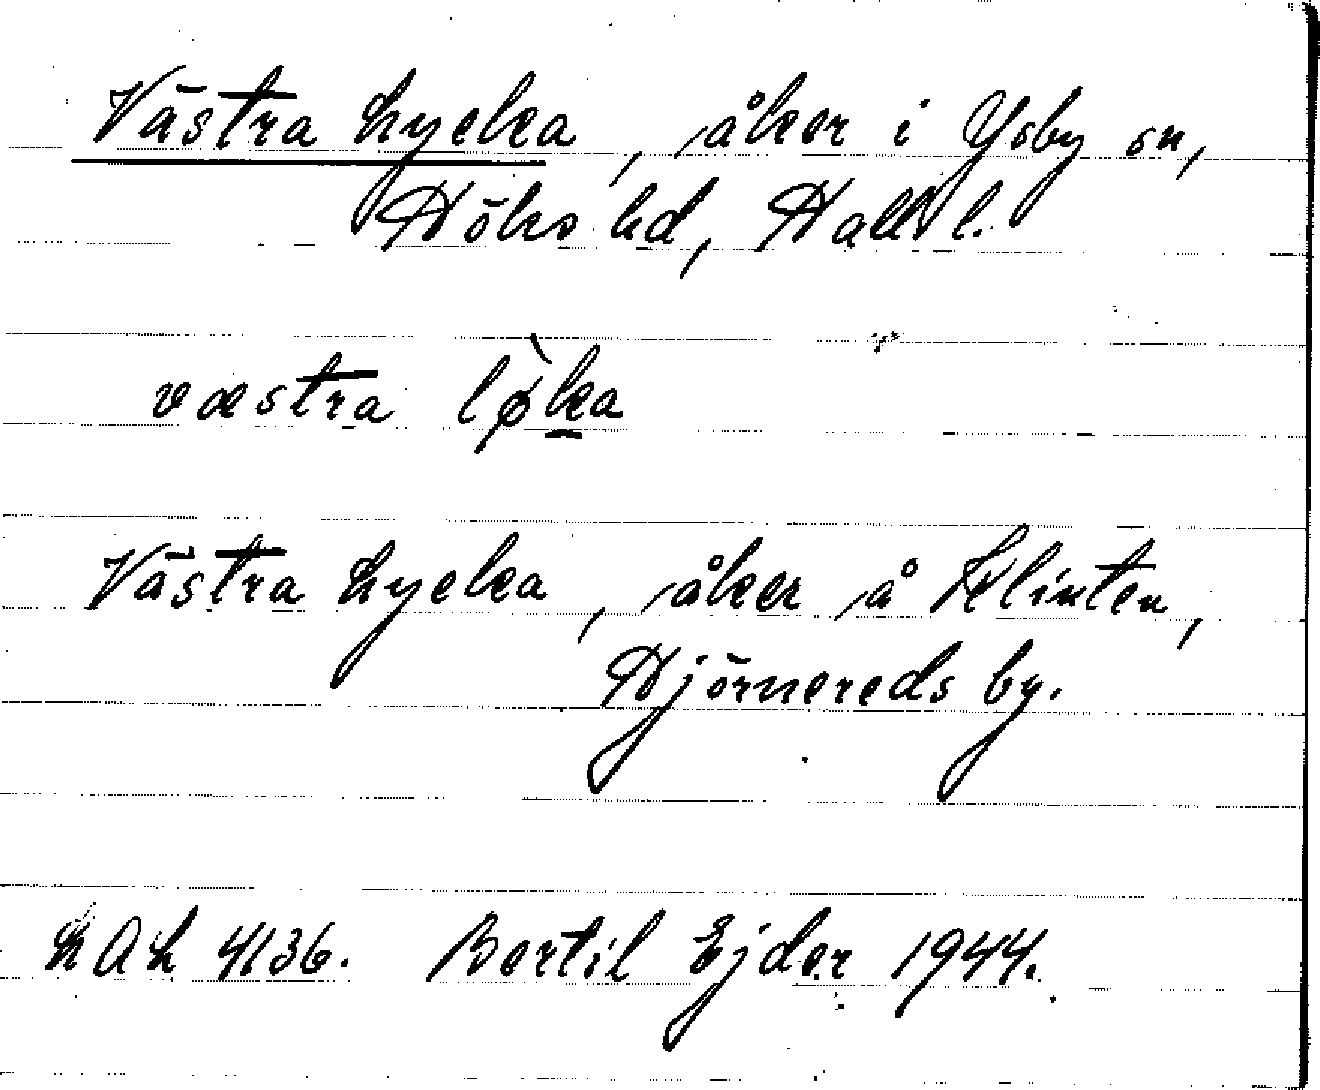 Västra Lycka, åker i Ysby sn,
Höks hd, Hall. l.
væstra lø̀ka
Västra Lycka, åker å Klinten,
Hjörnereds by.
LAL 4136. Bertil Ejder 1944.